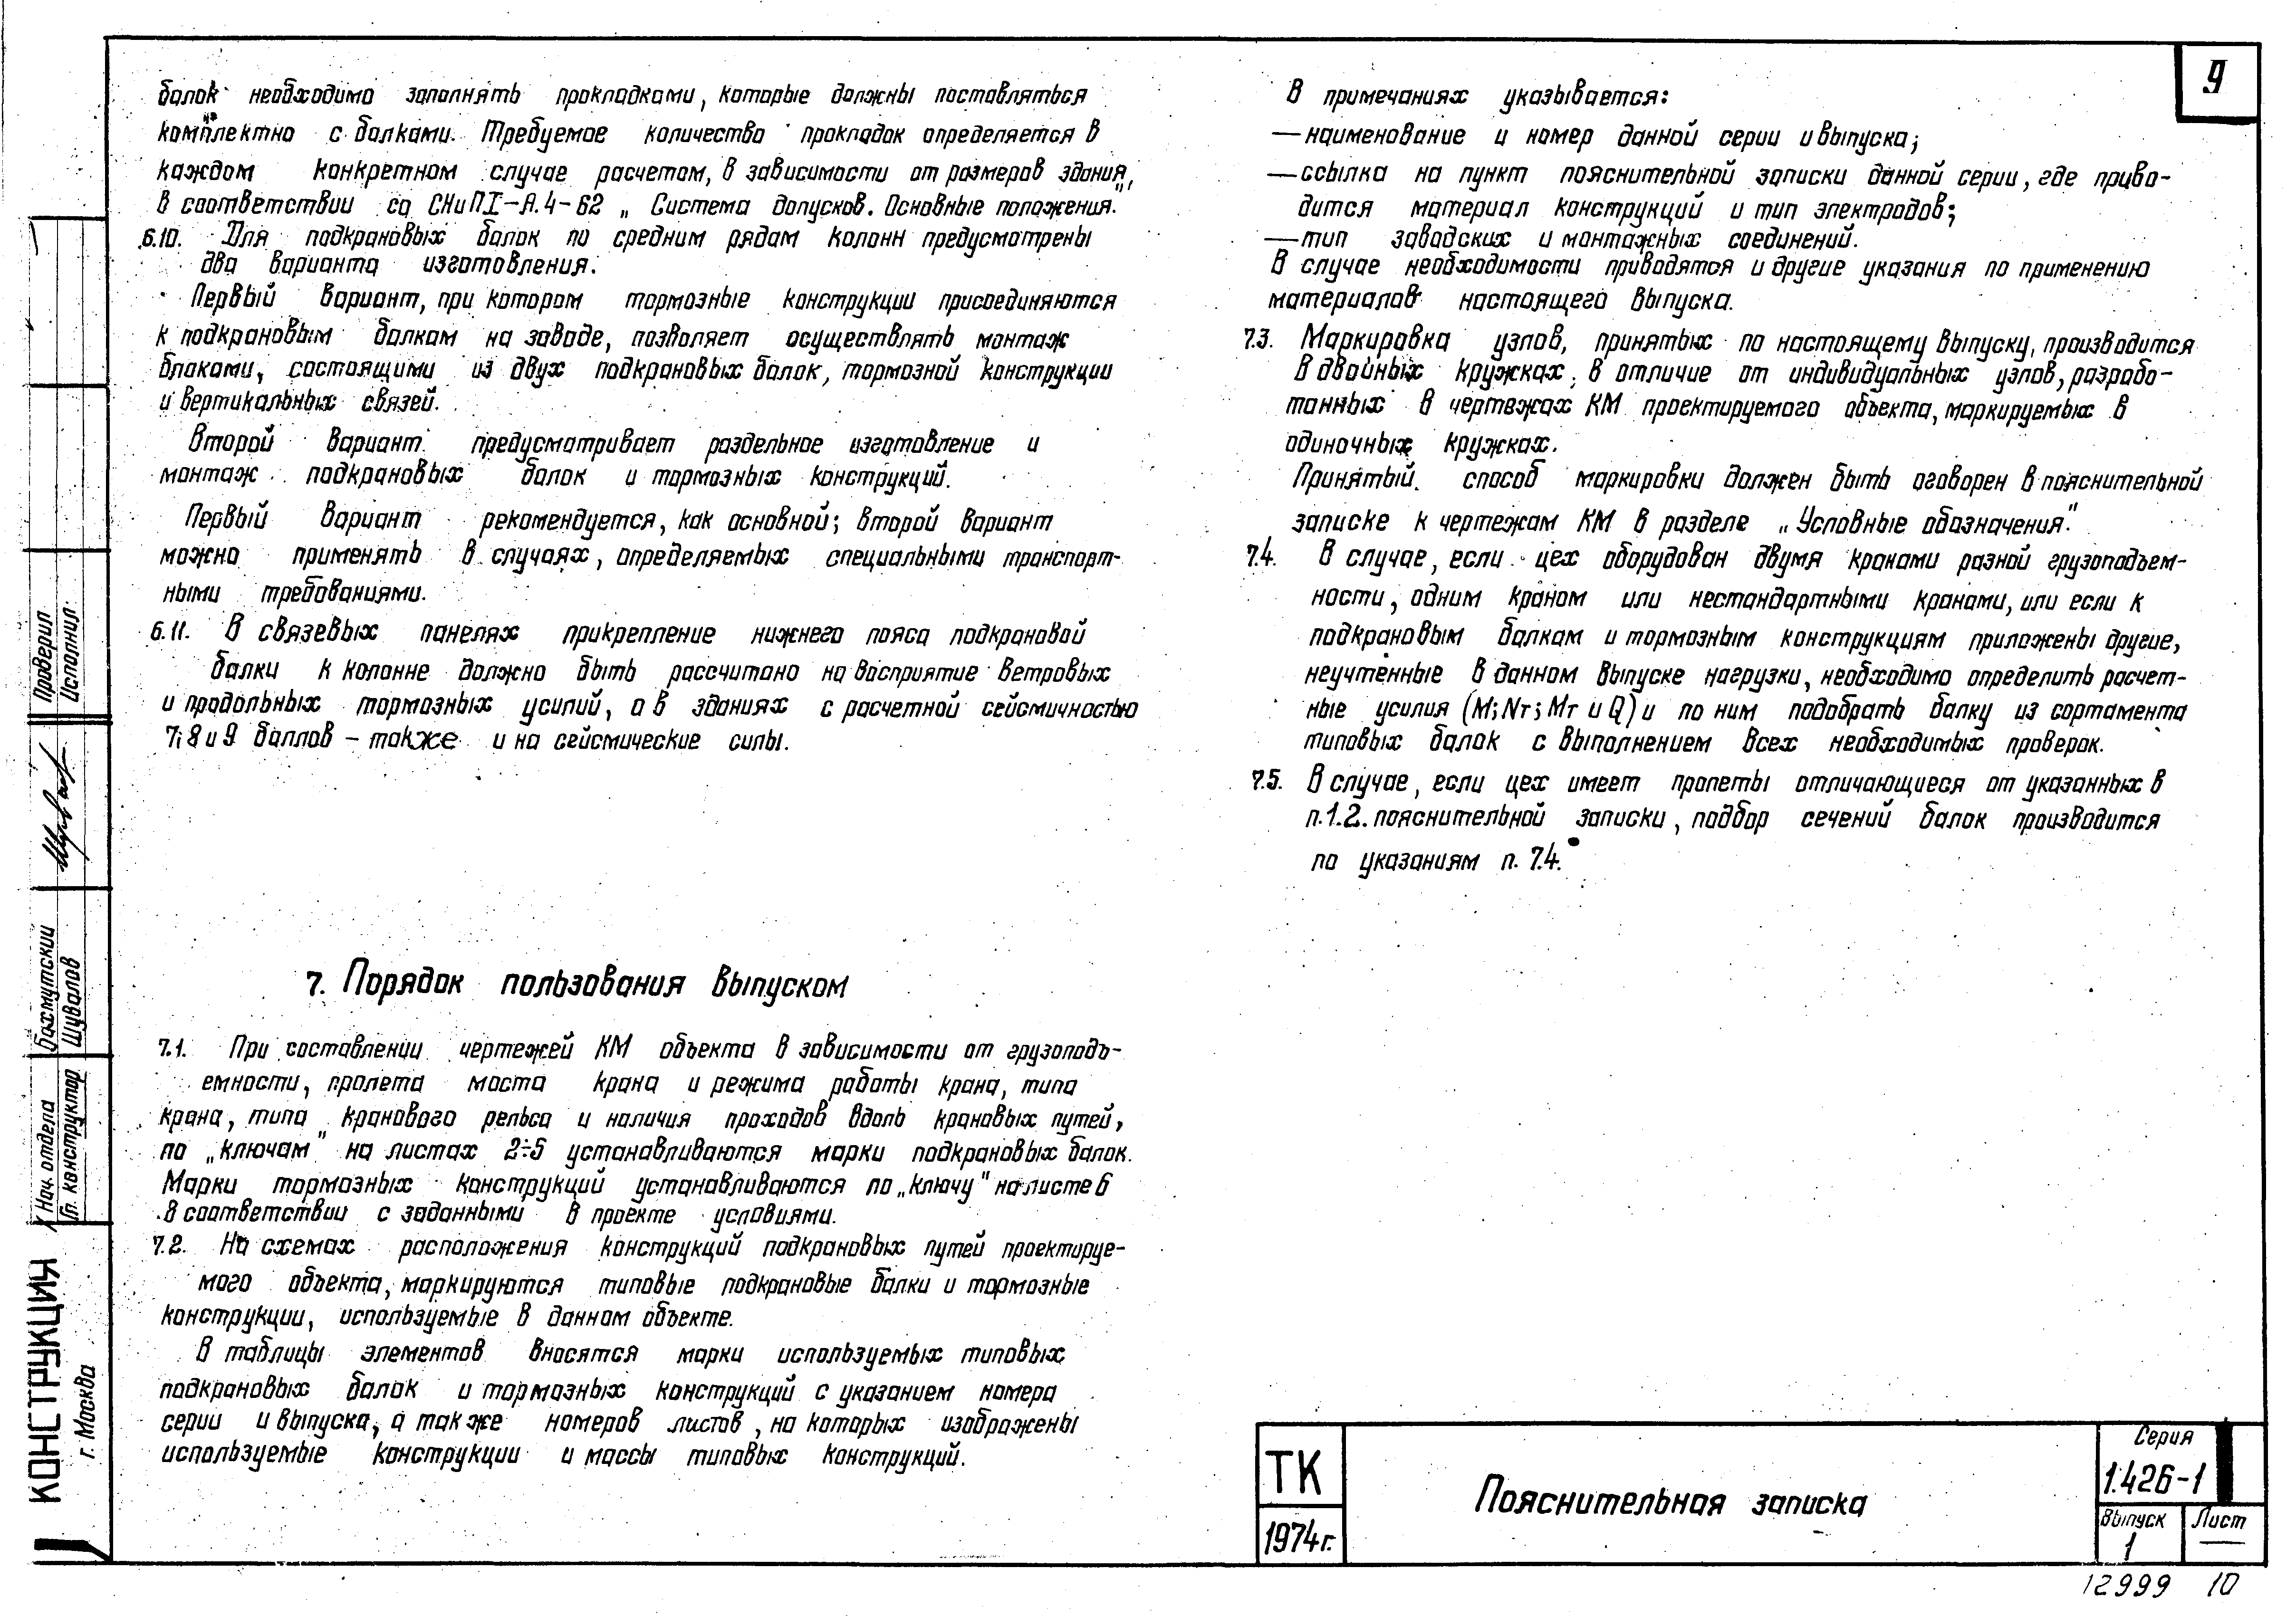 балок необходимо заполнять прокладками, которые должны поставляться
комплектно с балками. Требуемое количество прокладок определяется в
каждом конкретном случае расчетом, в зависимости от размеров здания,
в соответствии со СНиП I-А.4-62 „Система допусков. Основные положения."
6.10. Для подкрановых балок по средним рядам колонн предусмотрены
два варианта изготовления.
Первый вариант, при котором тормозные конструкции присоединяются
к подкрановым балкам на заводе, позволяет осуществлять монтаж
блоками, состоящими из двух подкрановых балок, тормозной конструкции
и вертикальных связей.
Второй вариант предусматривает раздельное изготовление и
монтаж подкрановых балок и тормозных конструкций.
Первый вариант рекомендуется, как основной; второй вариант
можно применять в случаях, определяемых специальными транспорт-
ными требованиями.
6.11. В связевых панелях прикрепление нижнего пояса подкрановой
балки к колонне должно быть рассчитано на восприятие ветровых
и продольных тормозных усилий, а в зданиях с расчетной сейсмичностью
7; 8 и 9 баллов – также и на сейсмические силы.
7. Порядок пользования выпуском
7.1. При составлении чертежей КМ объекта в зависимости от грузоподъ-
емности, пролета моста крана и режима работы крана, типа
крана, типа кранового рельса и наличия проходов вдоль крановых путей,
по „ключам" на листах 2÷5 устанавливаются марки подкрановых балок.
Марки тормозных конструкций устанавливаются по „ключу" на листе 6
в соответствии с заданными в проекте условиями.
7.2. На схемах расположения конструкций подкрановых путей проектируе-
мого объекта, маркируются типовые подкрановые балки и тормозные
конструкции, используемые в данном объекте.
В таблицы элементов вносятся марки используемых типовых
подкрановых балок и тормозных конструкций с указанием номера
серии и выпуска, а также номеров листов, на которых изображены
используемые конструкции и массы типовых конструкций.
9
В примечаниях указывается:
— наименование и номер данной серии и выпуска;
— ссылка на пункт пояснительной записки данной серии, где приво-
дится материал конструкций и тип электродов;
— тип заводских и монтажных соединений.
В случае необходимости приводятся и другие указания по применению
материалов настоящего выпуска.
7.3. Маркировка узлов, принятых по настоящему выпуску, производится
в двойных кружках, в отличие от индивидуальных узлов, разрабо-
танных в чертежах КМ проектируемого объекта, маркируемых в
одиночных кружках.
Принятый способ маркировки должен быть оговорен в пояснительной
записке к чертежам КМ в разделе „Условные обозначения".
7.4. В случае, если цех оборудован двумя кранами разной грузоподъем-
ности, одним краном или нестандартными кранами, или если к
подкрановым балкам и тормозным конструкциям приложены другие,
неучтенные в данном выпуске нагрузки, необходимо определить расчет-
ные усилия (М; Nт; Мт и Q) и по ним подобрать балку из сортамента
типовых балок с выполнением всех необходимых проверок.
7.5. В случае, если цех имеет пролеты отличающиеся от указанных в
п.1.2. пояснительной записки, подбор сечений балок производится
по указаниям п. 7.4.
Проверил
Исполнил
Нач. отдела Бахмутский
Гл. конструктор Шувалов
КОНСТРУКЦИЯ
г. Москва
ТК
1974г.
Пояснительная записка
Серия
1.426-1
Выпуск
1
Лист
—
12999 10